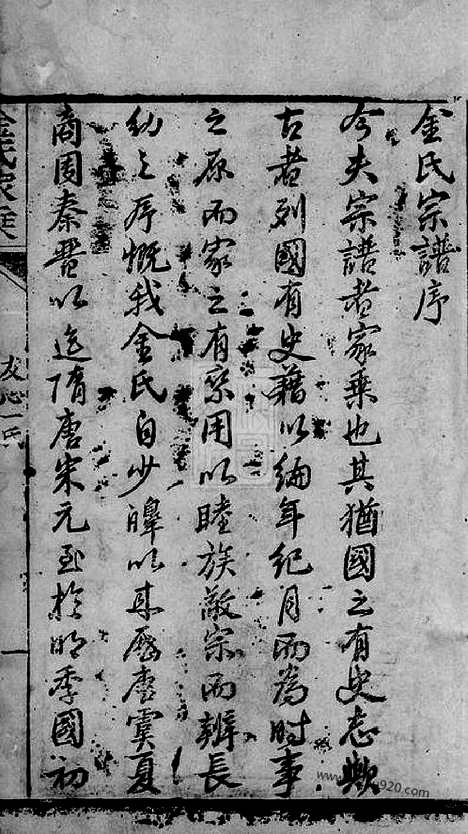 金氏宗譜序
今夫宗譜者家乘也其猶國之有史志歟
古者列國有史藉以編年紀月而為時事
之原而家之有乘用以睦族敬宗而辨長
幼之序慨我金氏自少皞以來歷唐虞夏
商周秦晋以迄隋唐宋元至於明季國初
金氏家乘
一